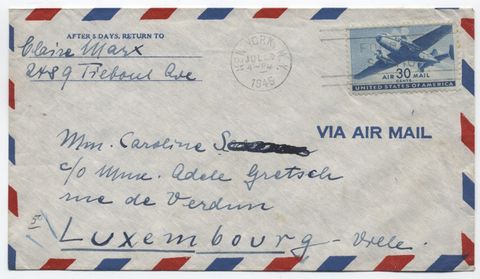 AFTER 5 DAYS, RETURN TO
Claire Marx
2489 Tiebout Ave
NEW YORK, N.Y.
JUL
1946
AIR 30 MAIL
CENTS
UNITED STATES OF AMERICA
VIA AIR MAIL
Mme. Caroline
c/o Mme. Adele Gretsch
rue de Verdun
5
Luxembourg - Ville.